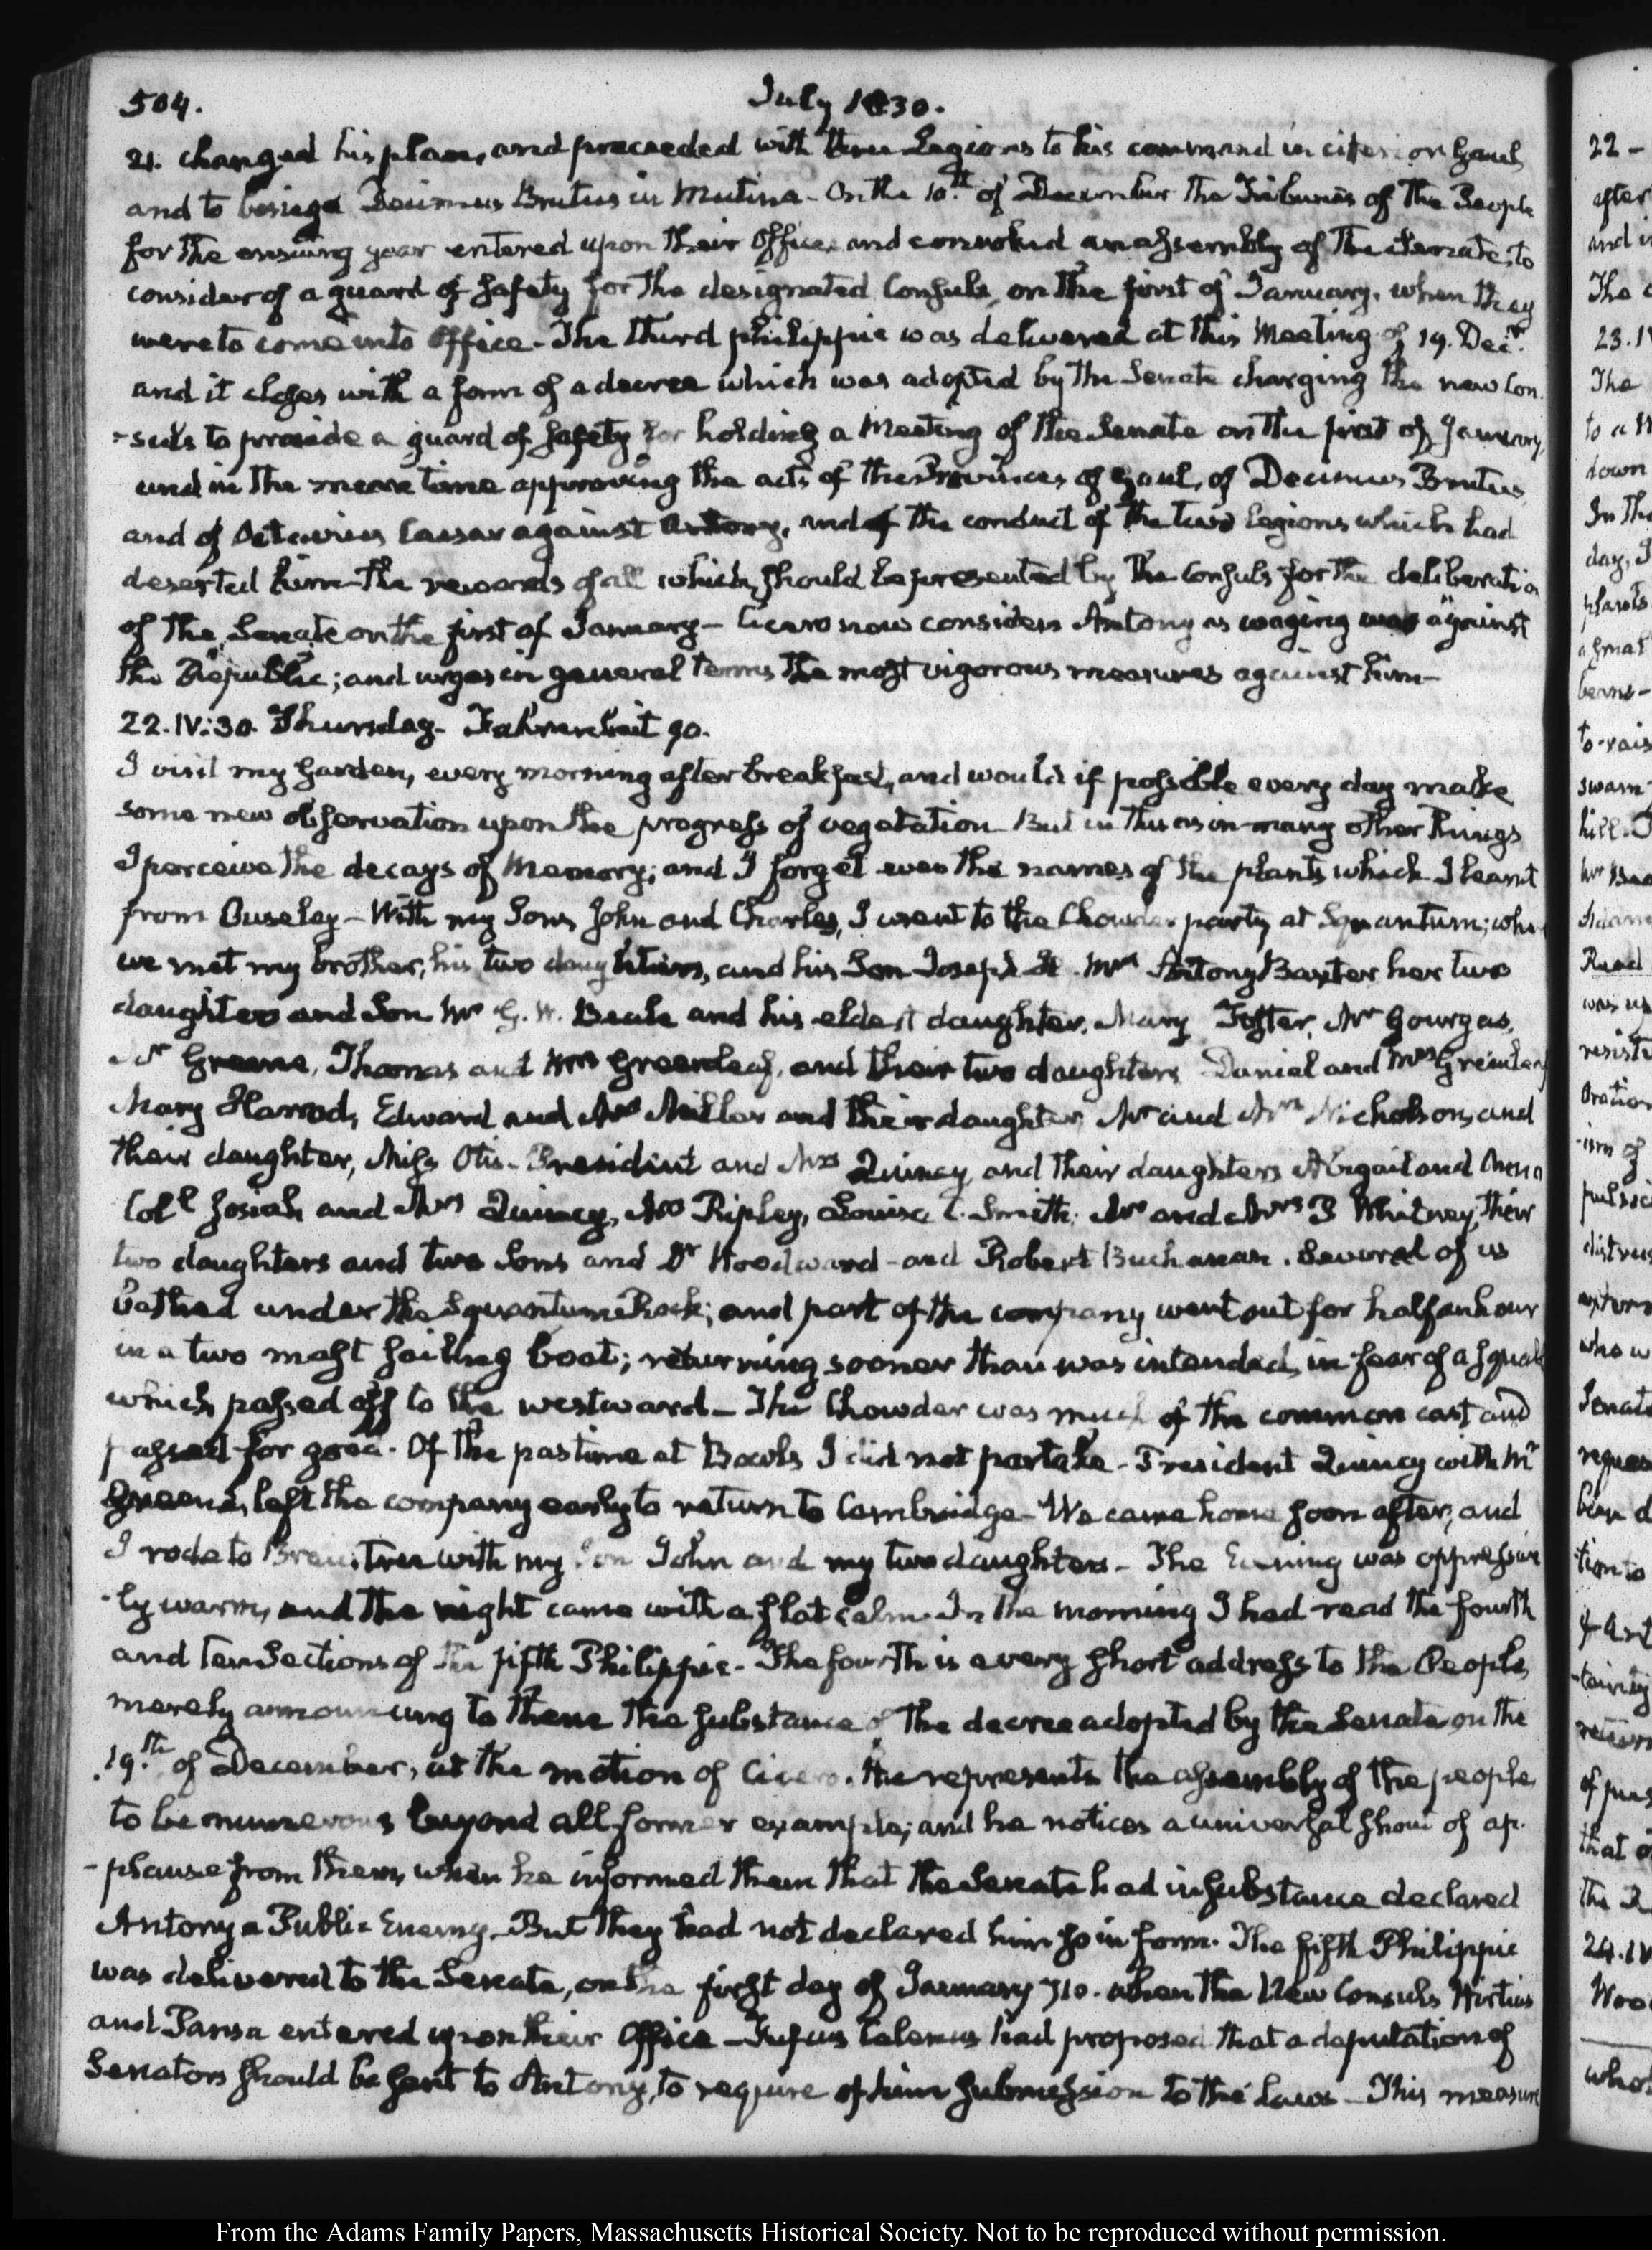 504.
July 1830.
21. changed his plan, and proceeded with three Legions to his command in citerior Gaul,
and to besiege Decimus Brutus in Mutina - On the 10th. of December the Tribunes of the People
for the ensuing year entered upon their Office, and convoked an assembly of the Senate, to
consider of a guard of safety for the designated Consuls, on the first of January, when they
were to come into Office - The third philippic was delivered at this Meeting of 19. Decr.
and it closes with a form of a decree which was adopted by the Senate charging the new Con-
-suls to provide a guard of safety for holding a Meeting of the Senate on the first of January,
and in the mean time approving the acts of the Provinces of Gaul, of Decimus Brutus
and of Octavius Caesar against Antony, and of the conduct of the two legions which had
deserted him - The rewards of all which, should be presented by the Consuls for the deliberation
of the Senate on the first of January - Cicero now considers Antony as waging war against
the Republic; and urges in general terms the most vigorous measures against him -
22. IV:30. Thursday - Fahrenheit 90.
I visit my Garden, every morning after breakfast, and would if possible every day make
some new observation upon the progress of vegetation - But in this as in many other things
I perceive the decays of Memory; and I forget even the names of the plants which I learnt
from Ouseley - With my Sons John and Charles, I went to the Chowder party at Squantum; where
we met my brother, his two daughters, and his Son Joseph H. Mrs Antony Baxter her two
daughters and Son Mr G. W. Beale and his eldest daughter, Mary Foster, Mr Gourgas,
Mr Greene, Thomas and Mrs Greenleaf, and their two daughters Daniel and Mrs Greenleaf
Mary Harrod, Edward and Mrs Miller and their daughter, Mr and Mrs Nicholson, and
their daughter, Miss Otis - President and Mrs Quincy, and their daughters Abigail and Anna
Coll Josiah and Mrs Quincy, Mrs Ripley, Louisa C. Smith, Mr and Mrs T Whitney, their
two daughters and two Sons and Dr Woodward - and Robert Buchanan. Several of us
bathed under the Squantum Rock; and part of the company went out for half an hour
in a two mast sailing boat; returning sooner than was intended, in fear of a squall
which passed off to the westward - The Chowder was much of the common cast and
passed for good. Of the pastime at Bowls I did not partake - President Quincy with Mr
Greene, left the company early to return to Cambridge - We came home soon after, and
I rode to Braintree with my Son John and my two daughters - The Evening was oppressive
-ly warm, and the night came with a flat calm. In the morning I had read the fourth
and ten Sections of the fifth Philippic - The fourth is a very short address to the People,
merely announcing to them the substance of the decree adopted by the Senate on the
19.th of December, at the motion of Cicero. He represents the assembly of the people
to be numerous beyond all former example; and he notices a universal shout of ap-
-plause from them, when he informed them that the Senate had in substance declared
Antony a Public Enemy - But they had not declared him so in form. The fifth Philippic
was delivered to the Senate, on the first day of January 710. when the New Consuls Hirtius
and Pansa entered upon their Office - Fufius Calenus had proposed that a deputation of
Senators should be sent to Antony, to require of him submission to the Laws - This measure
From the Adams Family Papers, Massachusetts Historical Society. Not to be reproduced without permission.